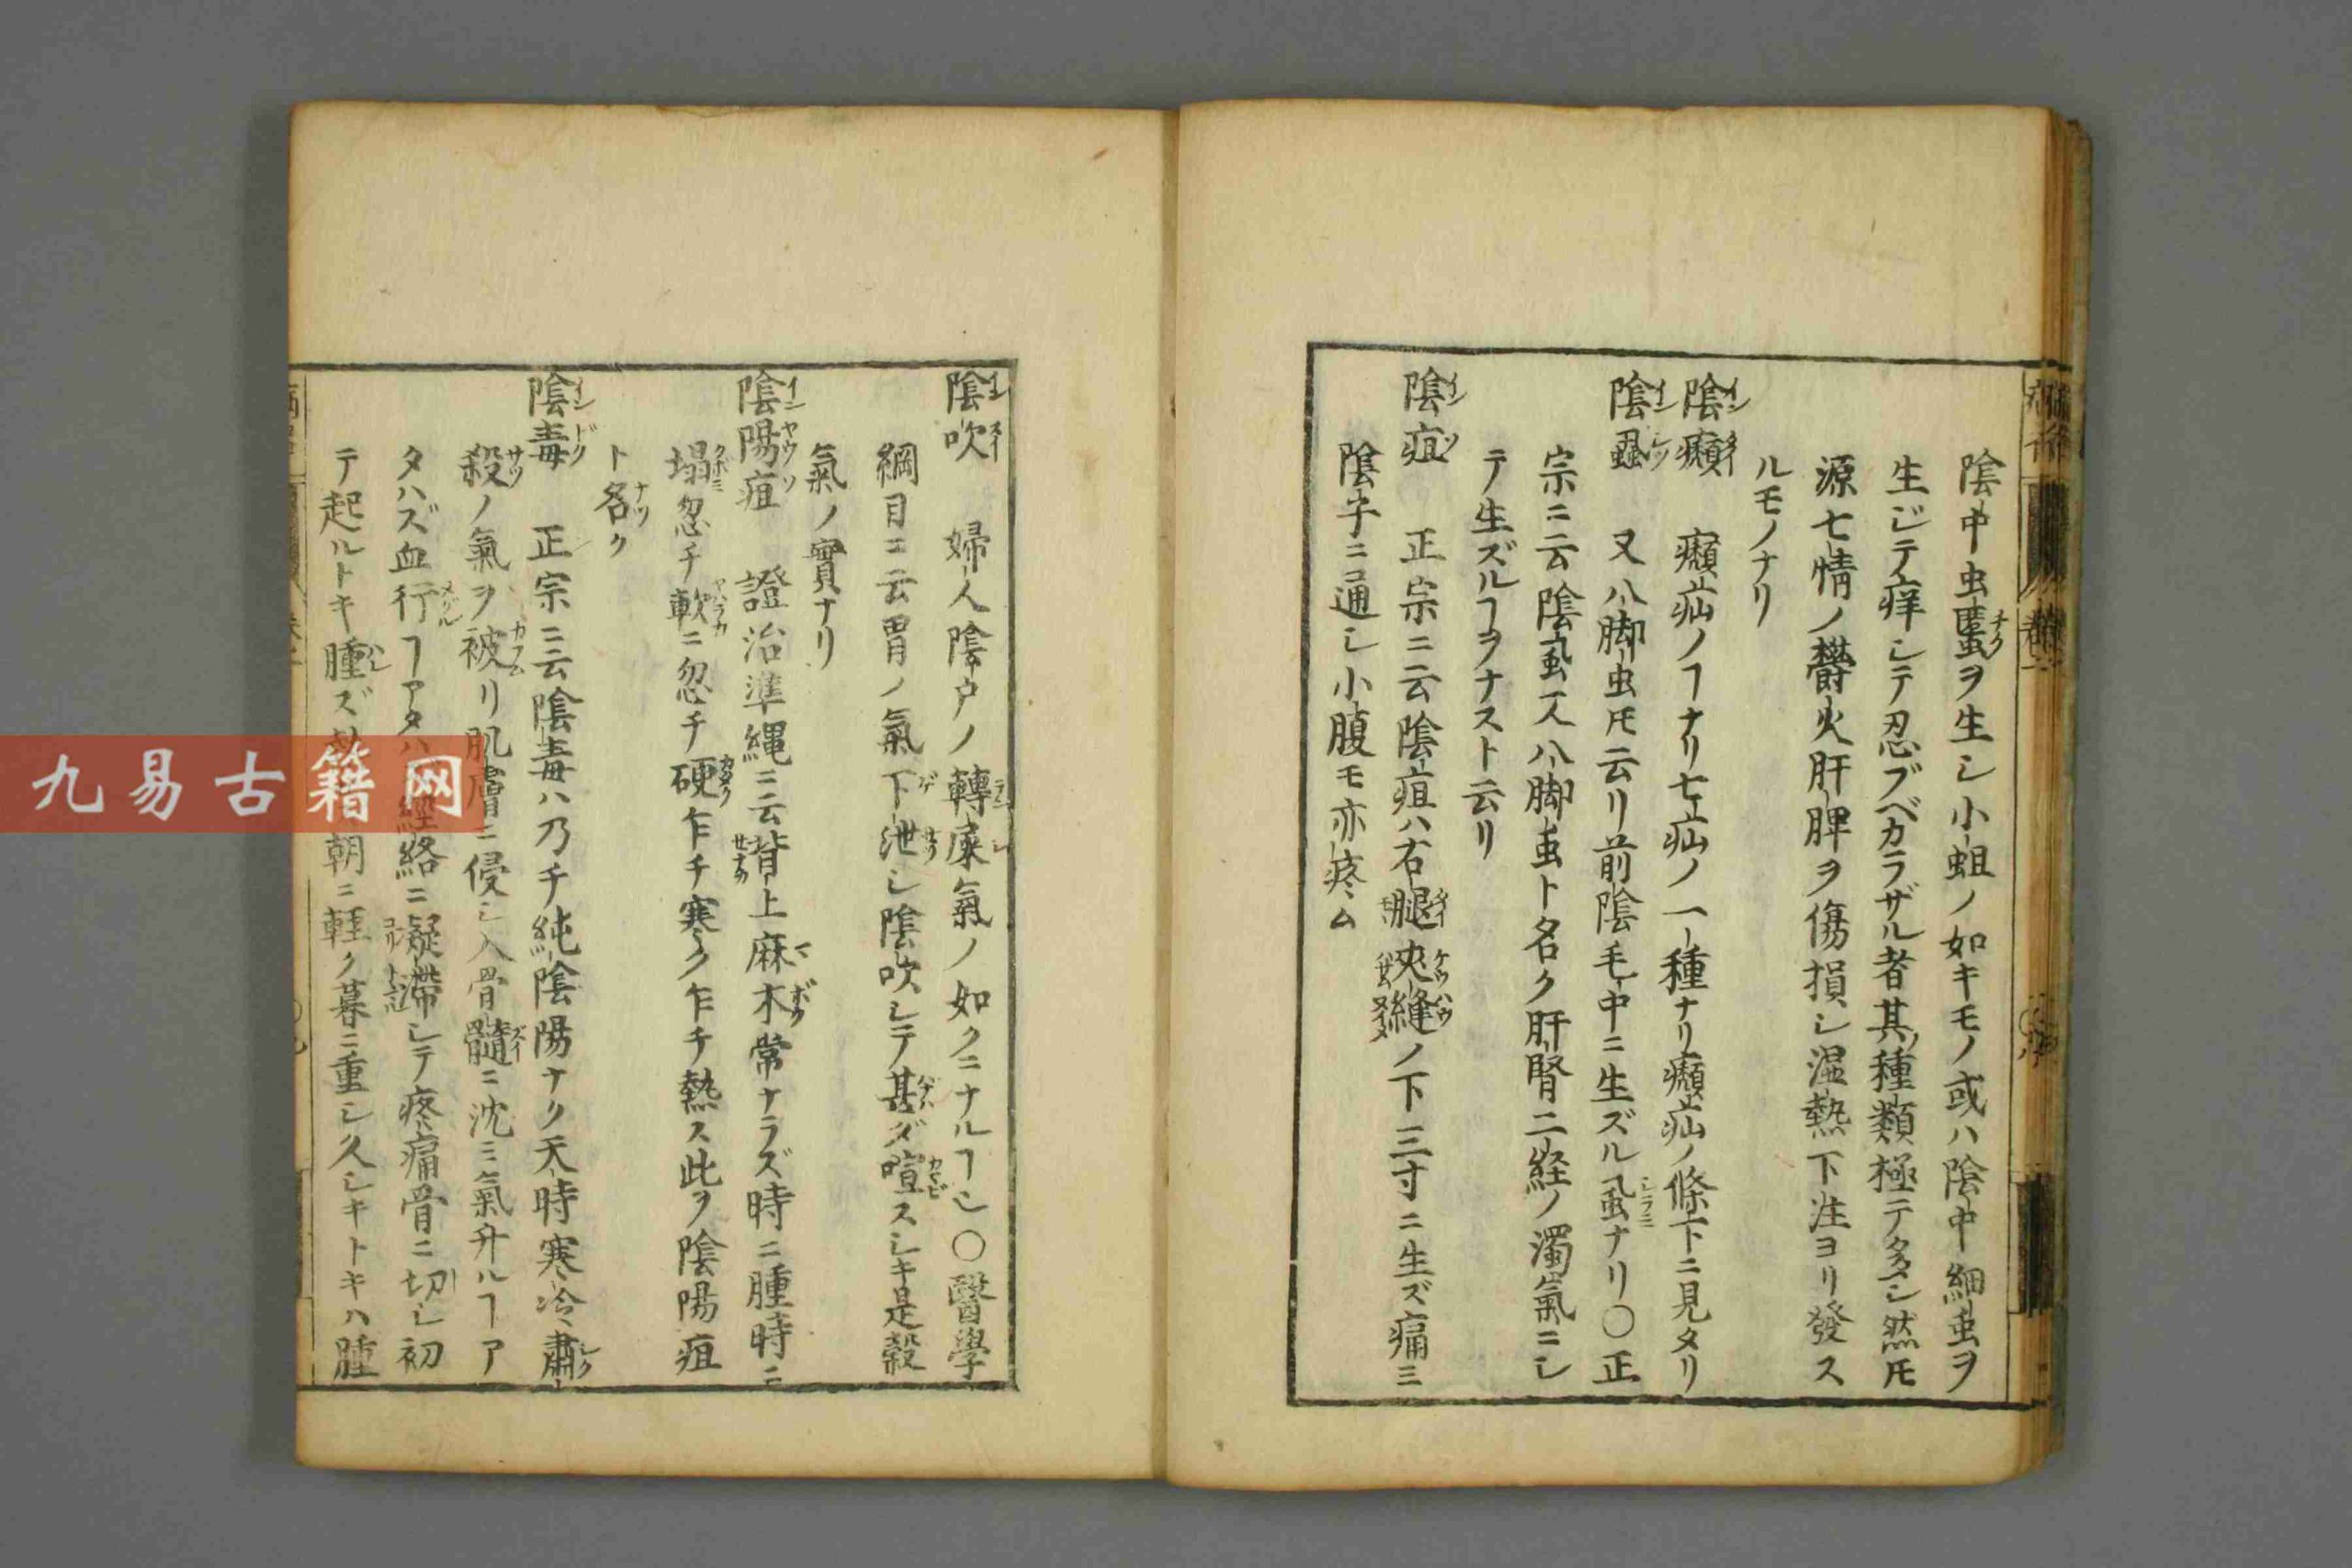 陰中虫䘌ヲ生シ小蛆ノ如キモノ或ハ陰中細虫ヲ
生ジテ痒シテ忍ブベカラザル者其種類極テ多シ然𪜈
源七情ノ欝火肝脾ヲ傷損シ湿熱下注ヨリ發ス
ルモノナリ
陰㿗 㿗疝ノヿナリ七疝ノ一種ナリ㿗疝ノ條下ニ見タリ
陰蝨 又八脚虫𪜈云リ前陰毛中ニ生ズル虱ナリ〇正
宗ニ云陰虱一八脚虫ト名ク肝腎二経ノ濁氣ニシ
テ生ズルヿヲナスト云リ
陰疽 正宗ニ云陰疽ハ右腿夾縫ノ下三寸ニ生ズ痛ミ
陰子ニ通シ小腹モ亦疼ム
陰吹 婦人陰户ノ轉糜氣ノ如クニナルヿシ〇醫學
綱目ニ云胃ノ氣下泄シ陰吹シテ甚ダ喧スシキ是穀
氣ノ實ナリ
陰陽疽 證治準縄ニ云背上麻木常ナラズ時ニ腫時ニ
塌忽チ軟ニ忽チ硬乍チ寒ク乍チ熱ス此ヲ陰陽疽
ト名ク
陰毒 正宗ニ云陰毒ハ乃チ純陰陽ナク天時寒冷肅
殺ノ氣ヲ被リ肌膚ニ侵シ入骨髓ニ沈ミ氣升ルヿア
タハズ血行ヿアタハ經絡ニ凝滯シテ疼痛骨ニ切シ初
テ起ルトキ腫ズ朝ニ軽ク暮ニ重シ久シキトキハ腫
九易古籍网